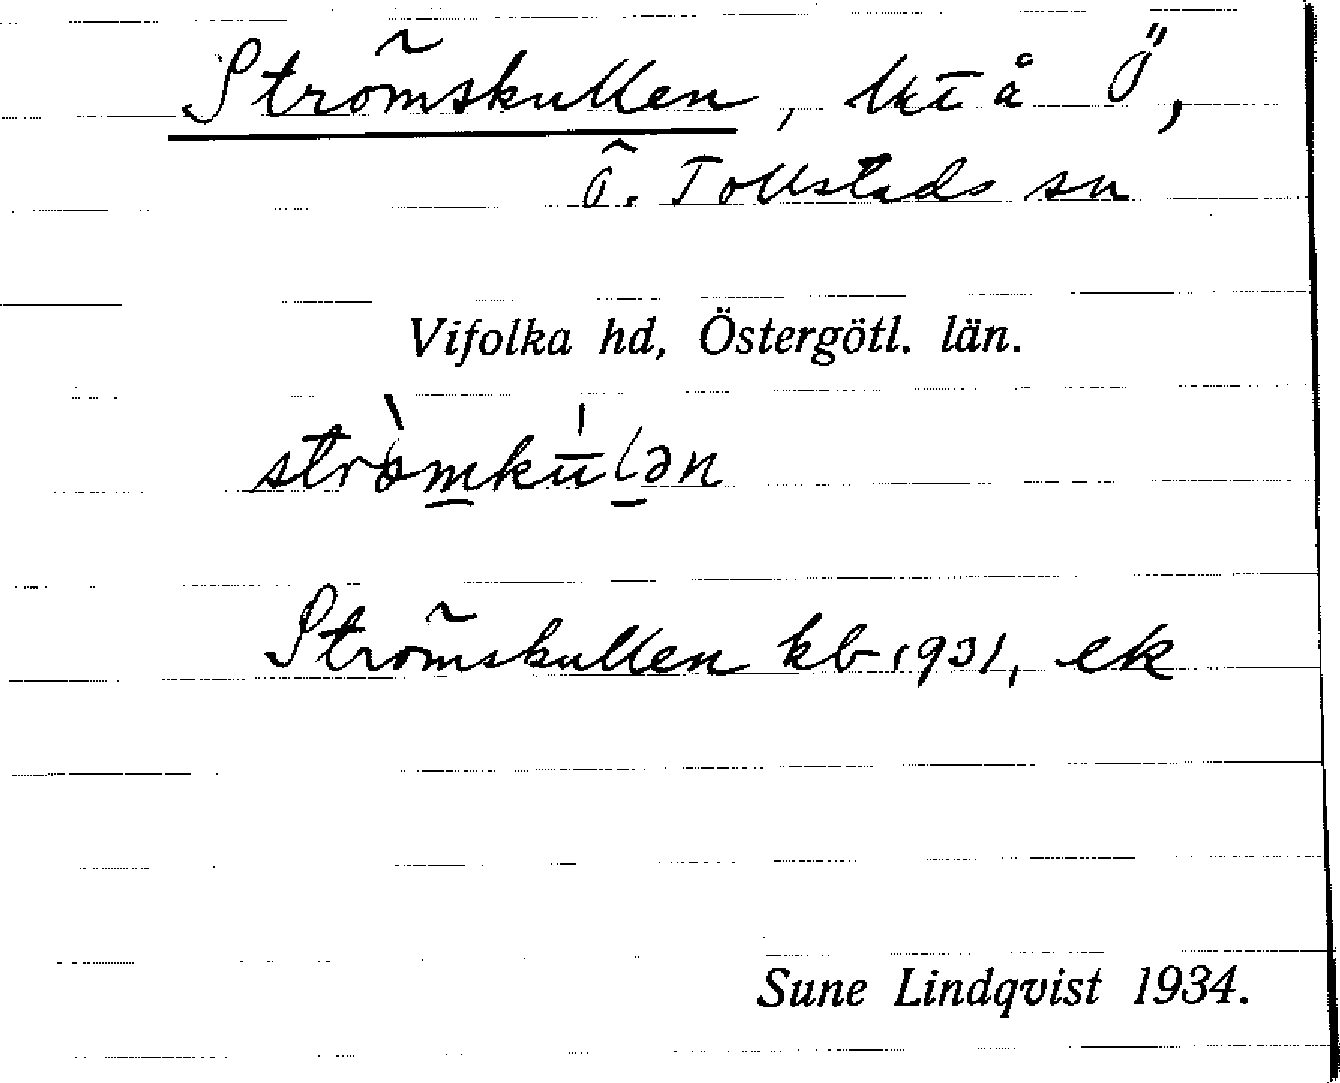 Strömskullen, lht å Ö,
Ö. Tollstads sn
Vifolka hd, Östergötl. län.
strömkulən
Strömskullen kb 1931, ek
Sune Lindqvist 1934.